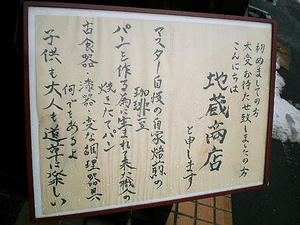 初めましての方
大変お待たせ致しましたの方
こんにちは
地蔵商店
と申します
マスター自慢の自家焙煎の
珈琲豆
パンを作る為に生まれて来た職人の
焼きたてパン
古食器・漆器・変な調理器具
何でもあるよ
子供も大人も道草は楽しい